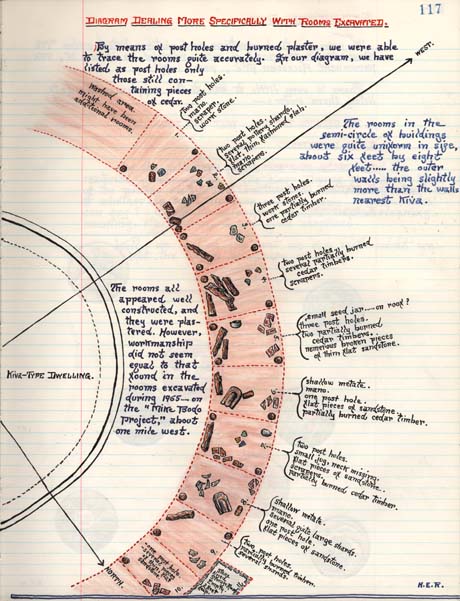 117
Diagram Dealing More Specifically With Rooms Excavated.
By means of post holes and burned plaster, we were able
to trace the rooms quite accurately. In our diagram, we have
listed as post holes only
those still con-
taining pieces
of cedar.
WEST.
Washed area.
might have been
additional rooms.
two post holes.
mano.
scraper.
work stone.
two post holes.
several pottery shards.
flat thin, fashioned slab.
mano.
scrapers.
The rooms in the
semi-circle of buildings
were quite uniform in size,
about six feet by eight
feet..... the outer
walls being slightly
more than the walls
nearest Kiva.
three post holes.
work stones.
one partially burned
cedar timber.
two post holes
several partially burned
cedar timbers.
scrapers.
The rooms all
appeared well
constructed, and
they were plas-
tered. However,
workmanship
did not seem
equal to that
found in the
rooms excavated
during 1965—on
the
project," about
one mile west.
small seed jar——on roof?
three post holes.
two partially burned
cedar timbers.
numerous broken pieces
of thin flat sandstone.
Kiva-Type Dwelling.
shallow metate.
mano.
one post hole.
flat pieces of sandstone.
partially burned cedar timber.
two post holes.
small jug, neck missing.
flat pieces of sandstone.
scrapers.
partially burned cedar timber.
shallow metate.
mano.
several quite large shards.
one post hole.
flat pieces of sandstone.
two post holes.
partially burned timber.
several shards.
NORTH.
10.
H.E.R.